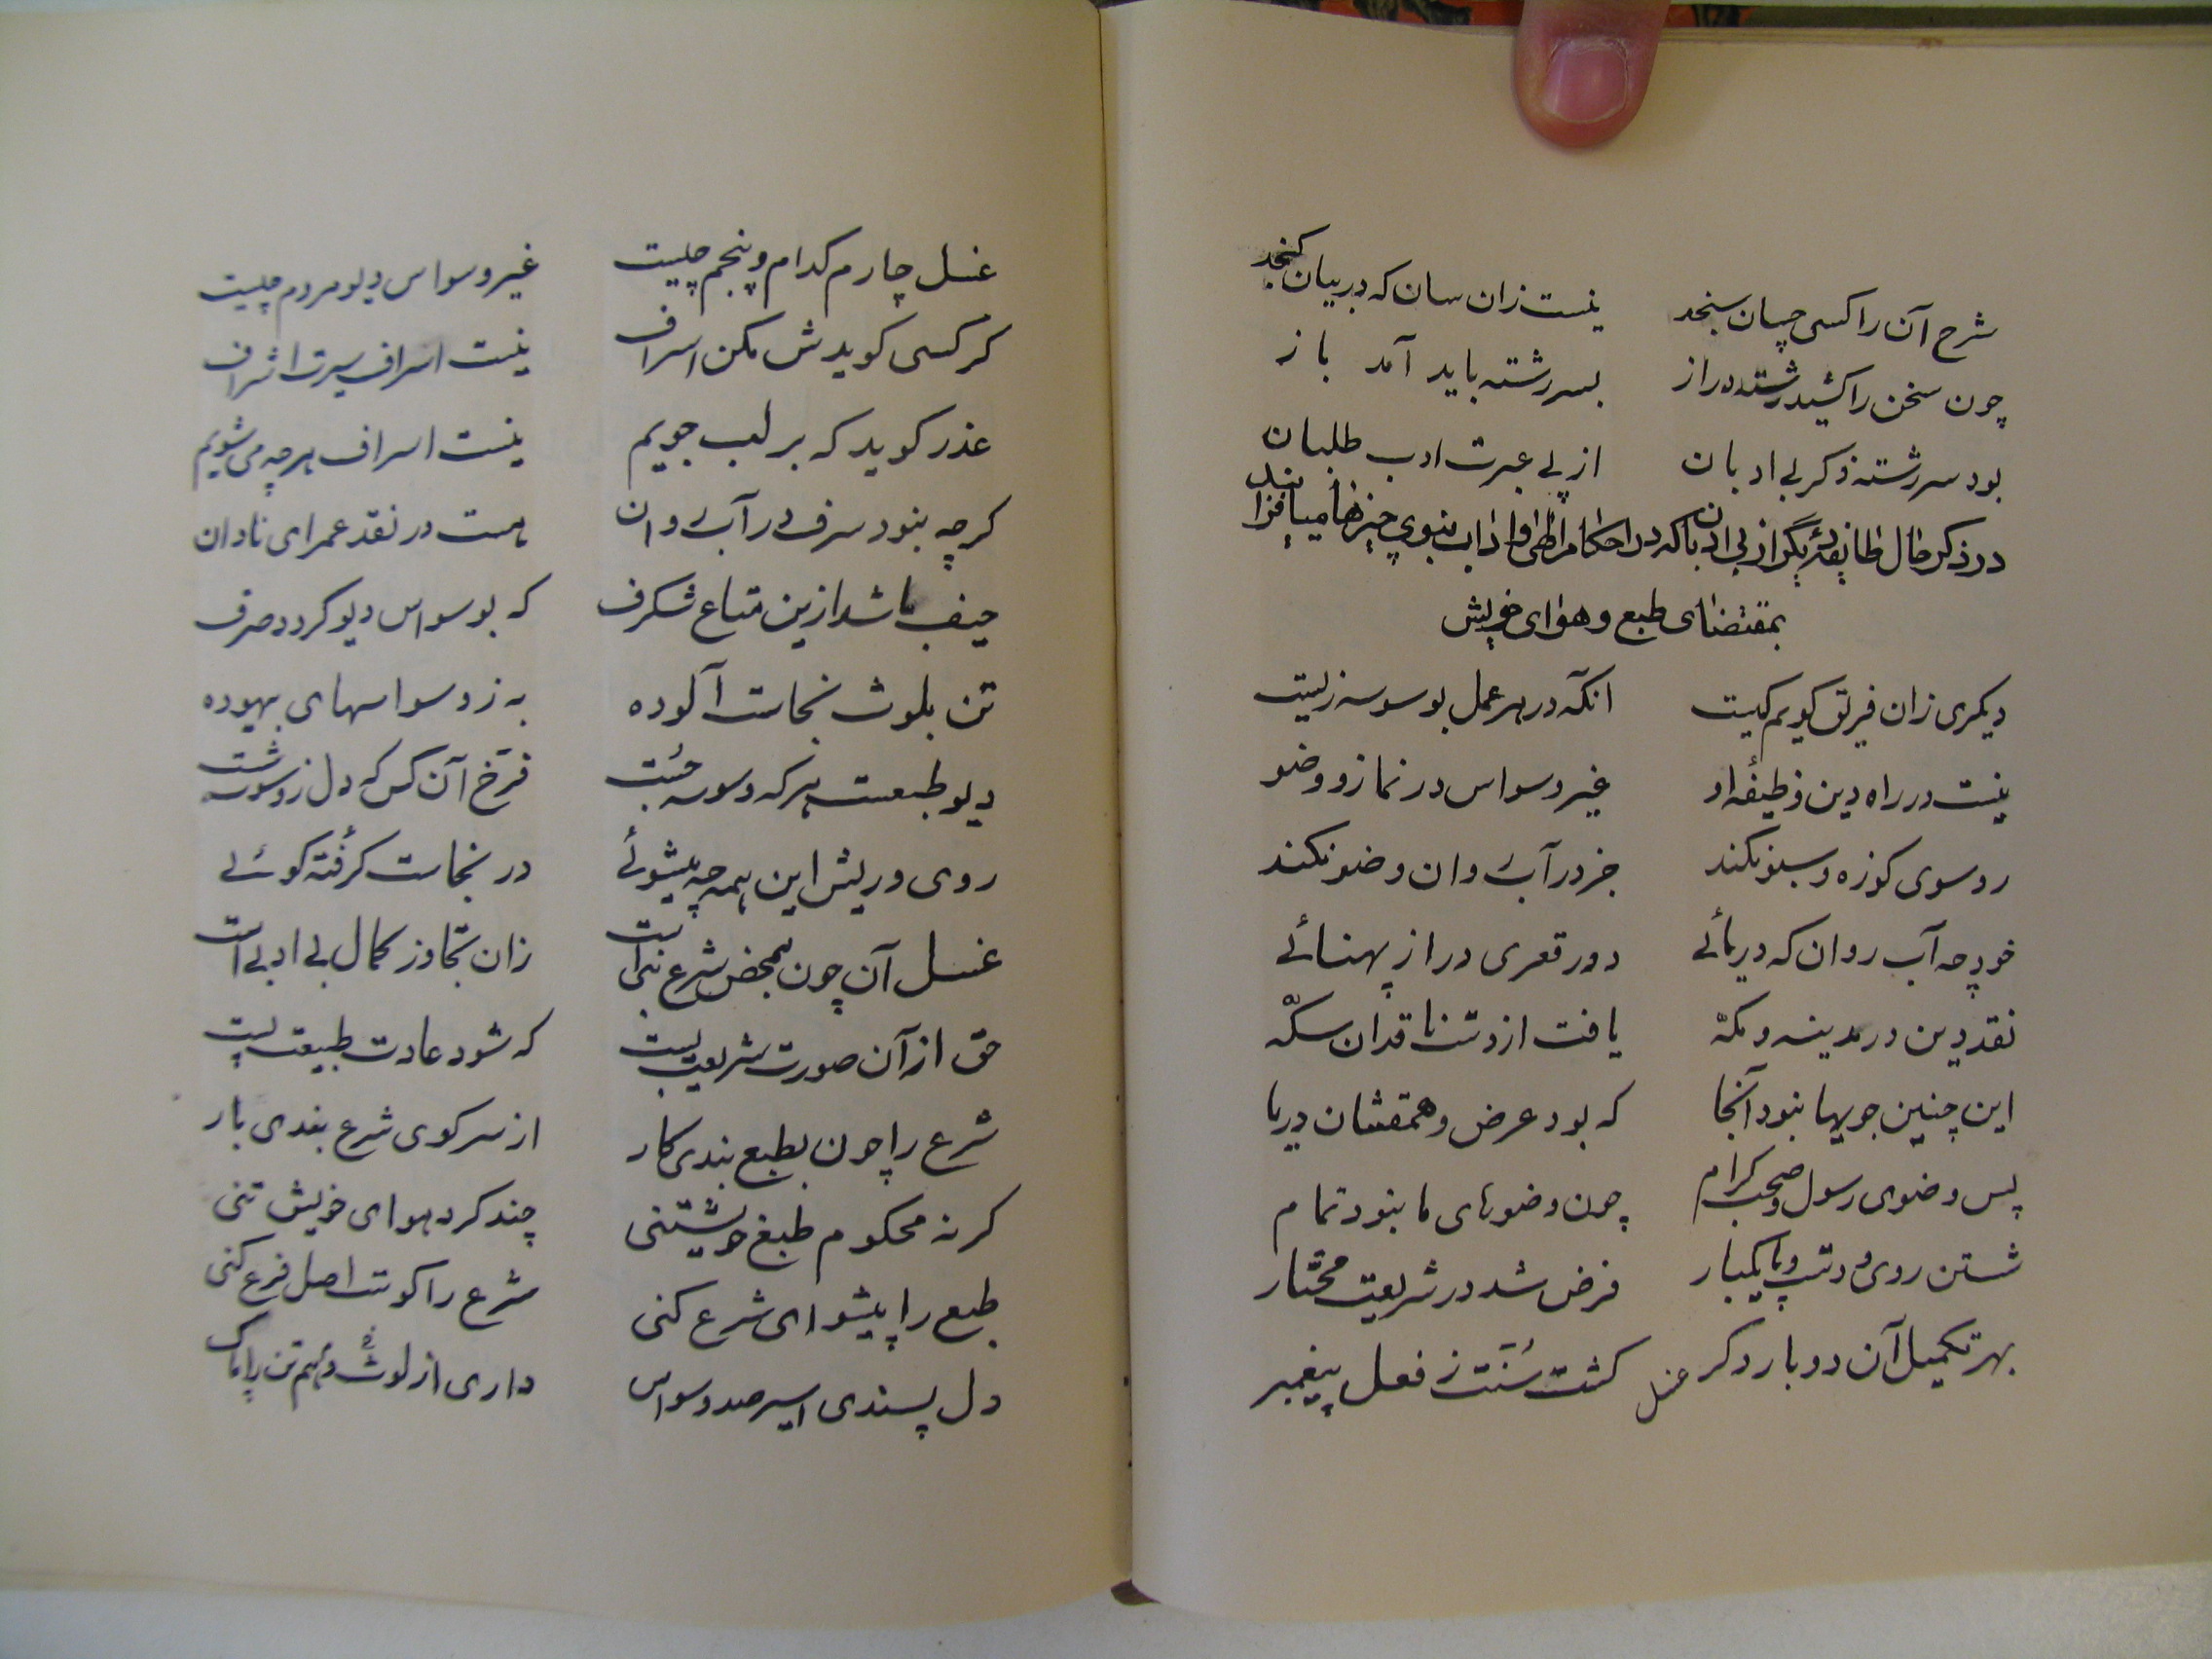 شرح آن را کسی چسان سنجد نیست زان سان که در بیان کنجد
چون سخن را کشید رشته دراز بسر رشته باید آمد باز
بود سر رشته ذکر بی ادبان از پی عبرت ادب طلبان
در ذکر حال طایفهٔ دیگر از بی ادبان که در احکام الهی و اداب نبوی چیزها میافزایند
بمقتضای طبع و هوای خویش
دیکری زان فریق کویم کیست انکه در هر عمل بوسوسه زیست
نیست در راه دین وظیفهٔ او غیر وسواس در نماز و وضو
رو سوی کوزه و سبو نکند جز در آب روان وضو نکند
خود چه آب روان که دریائے دور قعری دراز پهنائے
نقد دین در مدینه و مکّه یافت از دست ناقدان سکّه
این چنین جویها نبود آنجا که بود عرض و عمقشان دریا
پس وضوی رسول و صحب کرام چون وضوهای ما نبود تمام
شستن روی و دست و پا یکبار فرض شد در شریعت مختار
بهر تکمیل آن دو بار دکر کشت سُنّت ز فعل پیغمبر
غسل
غسل چارم کدام و پنجم چیست غیر وسواس دیو مردم چیست
کر کسی کویدش مکن اسراف نیست اسراف سیرت اشراف
عذر کوید که بر لب جویم نیست اسراف هر چه می شویم
کرچه نبود سرف در آب روان هست در نقد عمر ای نادان
حیف باشد ازین متاع شکرف که بوسواس دیو کردد صرف
تن بلوث نجاست آلوده به ز وسواسهای بیهوده
دیو طبعست هر که وسوسه جست فرّخ آن کس که دل ز وسوسه شست
روی و ریش این همه چه میشوئے در نجاست کرفته کوئے
غسل آن چون بمحض شرع نبی است زان تجاوز کمال بی ادبی است
حق از آن صورت شریعت بست که شود عادت طبیعت پست
شرع را چون بطبع بندی کار از سر کوی شرع بندی بار
کر نه محکوم طبع خویشتنی چند کرد هوای خویش تنی
طبع را پیشوای شرع کنی شرع را کوست اصل فرع کنی
دل پسندی اسیر صد وسواس داری از لوث وهم تن را پاک